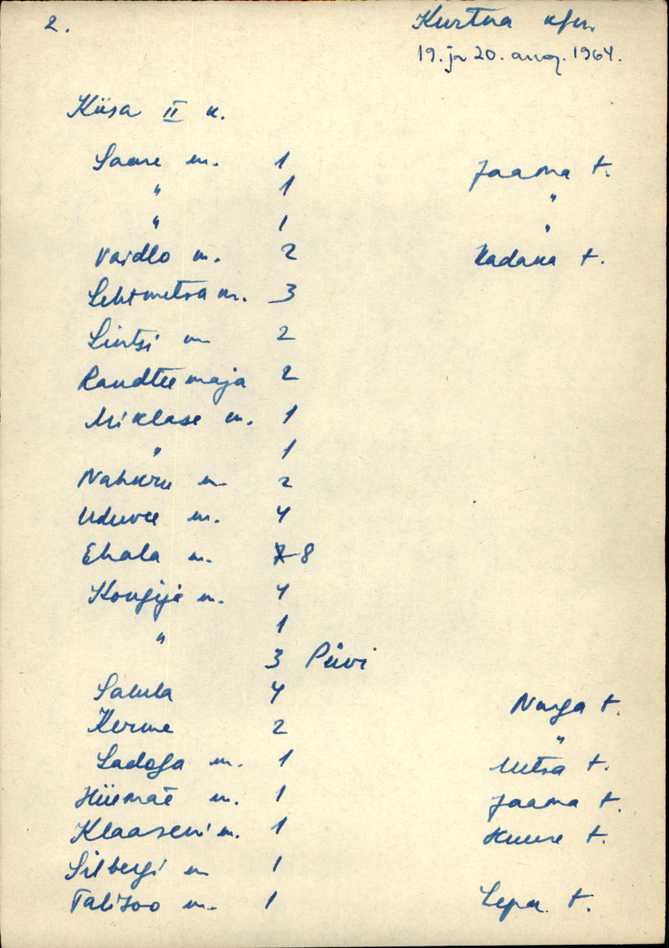 2. Kurtna
19. ja 20. aug. 1964.
Kiisa II k.
Saare m. 1 Jaama t.
" 1 "
" 1 "
Vaidlo m. 2 Kadaka t.
Lehtmetsa m. 3
Lintsi m 2
Raudtee maja 2
Miklase m. 1
" 1
Nahkru m 2
Uduvee m. 4
Ehala m. 7 8
Kongija m. 4
" 1
3 Piivi
Salula 4 Nurga t.
Kerme 2 "
Ladoga m. 1 Metsa t.
Hiiemäe m. 1 Jaama t.
Klaaseni m. 1 Kuuse t.
Silbergi m 1
Talisoo m. 1 Lepa t.